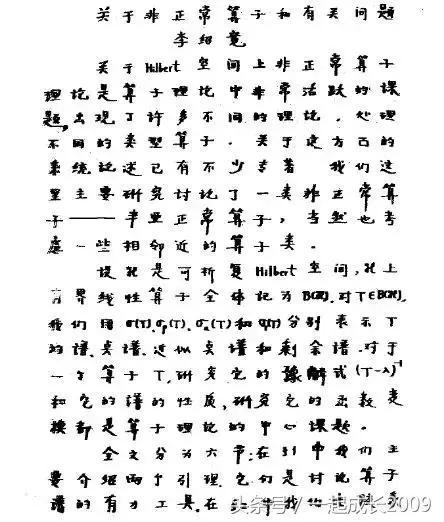 关于非正常算子和有关问题
李绍宽
关于Hilbert空间上非正常算子
理论是算子理论中非常活跃的课
题,出现了许多不同的理论,处理
不同的类型算子.关于这方面的
系统论述已有不少专著.我们这
里主要研究讨论了一类非正常算
子——半亚正常算子,当然也考
虑一些相邻近的算子类.
设H是可析复Hilbert空间,H上
有界线性算子全体记为B(H).对T∈B(H),
我们用σ(T),σp(T),σa(T)和 分别表示T
的谱,点谱,近似点谱和剩余谱.对于
一个算子T,研究它的豫解式(T-λ)⁻¹
和它的谱的性质,研究它的函数变
换都是算子理论的中心课题.
全文分为六节:在引中我们主
要介绍两个引理,它们是讨论算子
谱的有力工具.在
头条号/一起成长2009